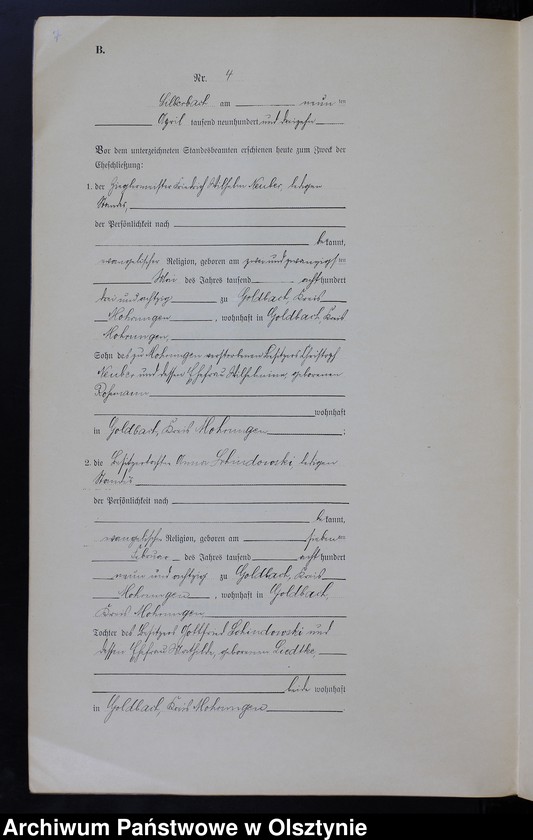 B.
Nr. 4
Silberbach am neunten
April tausend neunhundert und dreizehn
Vor dem unterzeichneten Standesbeamten erschienen heute zum Zweck der
Eheschließung:
1. der Zieglermeister Friedrich Wilhelm Neuber, ledigen
Standes,
der Persönlichkeit nach
bekannt,
evangelischer Religion, geboren am zweiundzwanzigsten
Mai des Jahres tausend acht hundert
dreiundachtzig zu Goldbach, Kreis
Mohrungen, wohnhaft in Goldbach, Kreis
Mohrungen,
Sohn des zu Mohrungen verstorbenen Besitzers Christoph
Neuber und dessen Ehefrau Wilhelmine, geborenen
wohnhaft
in Goldbach, Kreis Mohrungen;
2. die Besitzertochter Anna Lehndowski, ledigen
Standes
der Persönlichkeit nach
bekannt,
evangelischer Religion, geboren am siebenten
Februar des Jahres tausend acht hundert
neunundachtzig zu Goldbach, Kreis
Mohrungen, wohnhaft in Goldbach,
Kreis Mohrungen
Tochter des Besitzers Gottfried Lehndowski und
dessen Ehefrau Mathilde, geborenen Liedtke,
beide wohnhaft
in Goldbach, Kreis Mohrungen.
Archiwum Państwowe w Olsztynie